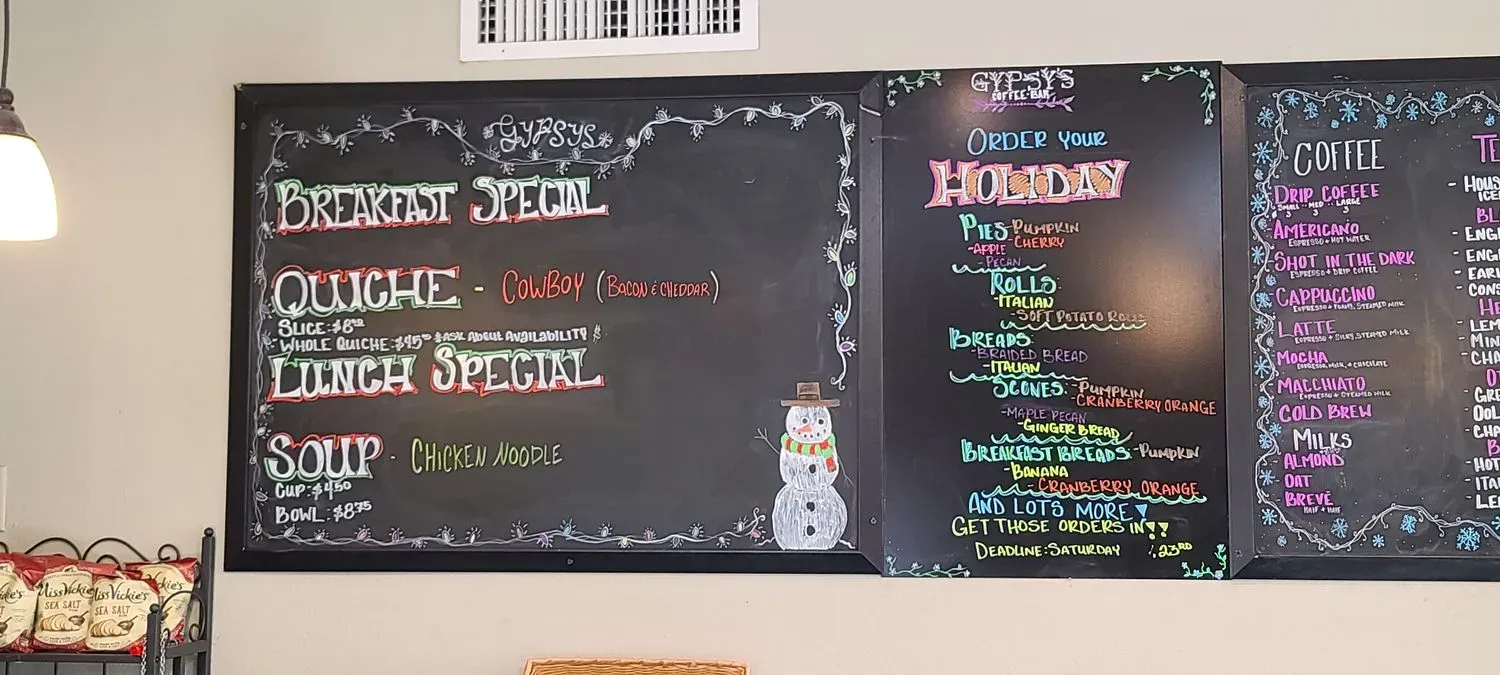 GYPSYS
BREAKFAST SPECIAL
QUICHE - COWBOY (BACON & CHEDDAR)
SLICE: $8
- WHOLE QUICHE: $45 *ASK ABOUT AVAILABILITY*
LUNCH SPECIAL
SOUP - CHICKEN NOODLE
CUP: $4.50
BOWL: $8.75
GYPSY'S
COFFEE BAR
ORDER YOUR
HOLIDAY
PIES -PUMPKIN
-APPLE -CHERRY
-PECAN
ROLLS:
-ITALIAN
-SOFT POTATO ROLLS
BREADS:
-BRAIDED BREAD
-ITALIAN
SCONES: -PUMPKIN
-CRANBERRY ORANGE
-MAPLE PECAN
-GINGERBREAD
BREAKFAST BREADS: -PUMPKIN
-BANANA
-CRANBERRY ORANGE
AND LOTS MORE!
GET THOSE ORDERS IN!!
DEADLINE: SATURDAY 23RD
COFFEE
DRIP COFFEE
SMALL MED LARGE
AMERICANO
ESPRESSO + HOT WATER
SHOT IN THE DARK
ESPRESSO + DRIP COFFEE
CAPPUCCINO
ESPRESSO + FOAMY, STEAMED MILK
LATTE
ESPRESSO + SILKY, STEAMED MILK
MOCHA
ESPRESSO, MILK, + CHOCOLATE
MACCHIATO
ESPRESSO + STEAMED MILK
COLD BREW
MILKS
ALMOND
OAT
BREVE
HALF + HALF
TE
- HOUS
ICE
BL
- ENGL
- ENG
- EARL
- CONS
HE
- LEM
- MIN
- CHA
O
- GRE
- OOL
- CHA
B
- HOT
- ITA
- LE
Miss Vickie's
SEA SALT
Miss Vickie's
SEA SALT